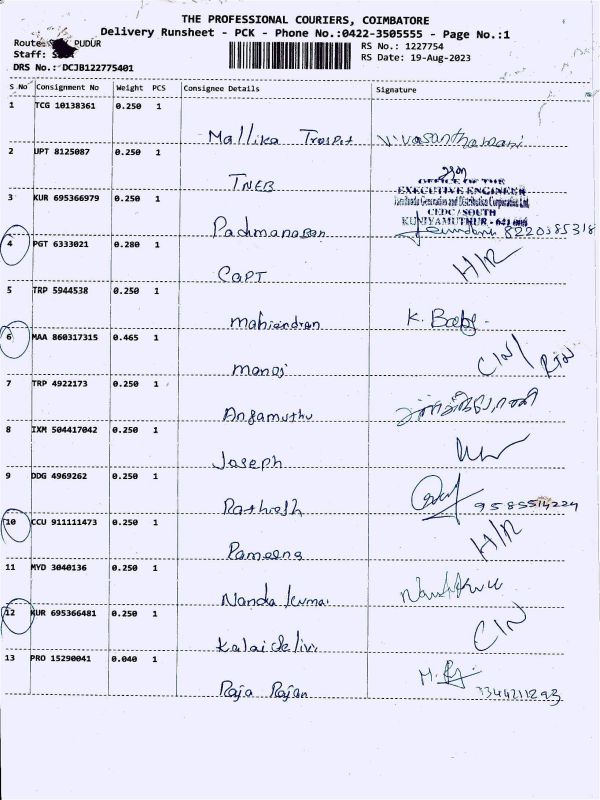 THE PROFESSIONAL COURIERS, COIMBATORE
Delivery Runsheet - PCK - Phone No.:0422-3505555 - Page No.:1
Route: PUDUR
RS No.: 1227754
Staff:
RS Date: 19-Aug-2023
DRS No.: DCJB122775401
S No Consignment No Weight PCS Consignee Details Signature
1 TCG 10138361 0.250 1
Mallika
2 UPT 8125087 0.250 1
TNEB
OFFICE OF THE
EXECUTIVE ENGINEER
Tamilnadu Generation and Distribution Corporation Ltd.
CEDC / SOUTH
KUNIYAMUTHUR - 641 008
3 KUR 695366979 0.250 1
Padmanaban 8220385318
4 PGT 6333021 0.280 1
CAPT H/R
5 TRP 5944538 0.250 1
Mahendran K. Baby
6 MAA 860317315 0.465 1
Manoj CIN/ RTN
7 TRP 4922173 0.250 1
Angamuthu
8 IXM 504417042 0.250 1
Joseph
9 DDG 4969262 0.250 1
Rathish 9585514224
10 CCU 911111473 0.250 1
Pameena H/R
11 MYD 3040136 0.250 1
Nanda kumar
12 KUR 695366481 0.250 1
Kalaiselvi CIN
13 PRO 15290041 0.040 1
Raja Rajan